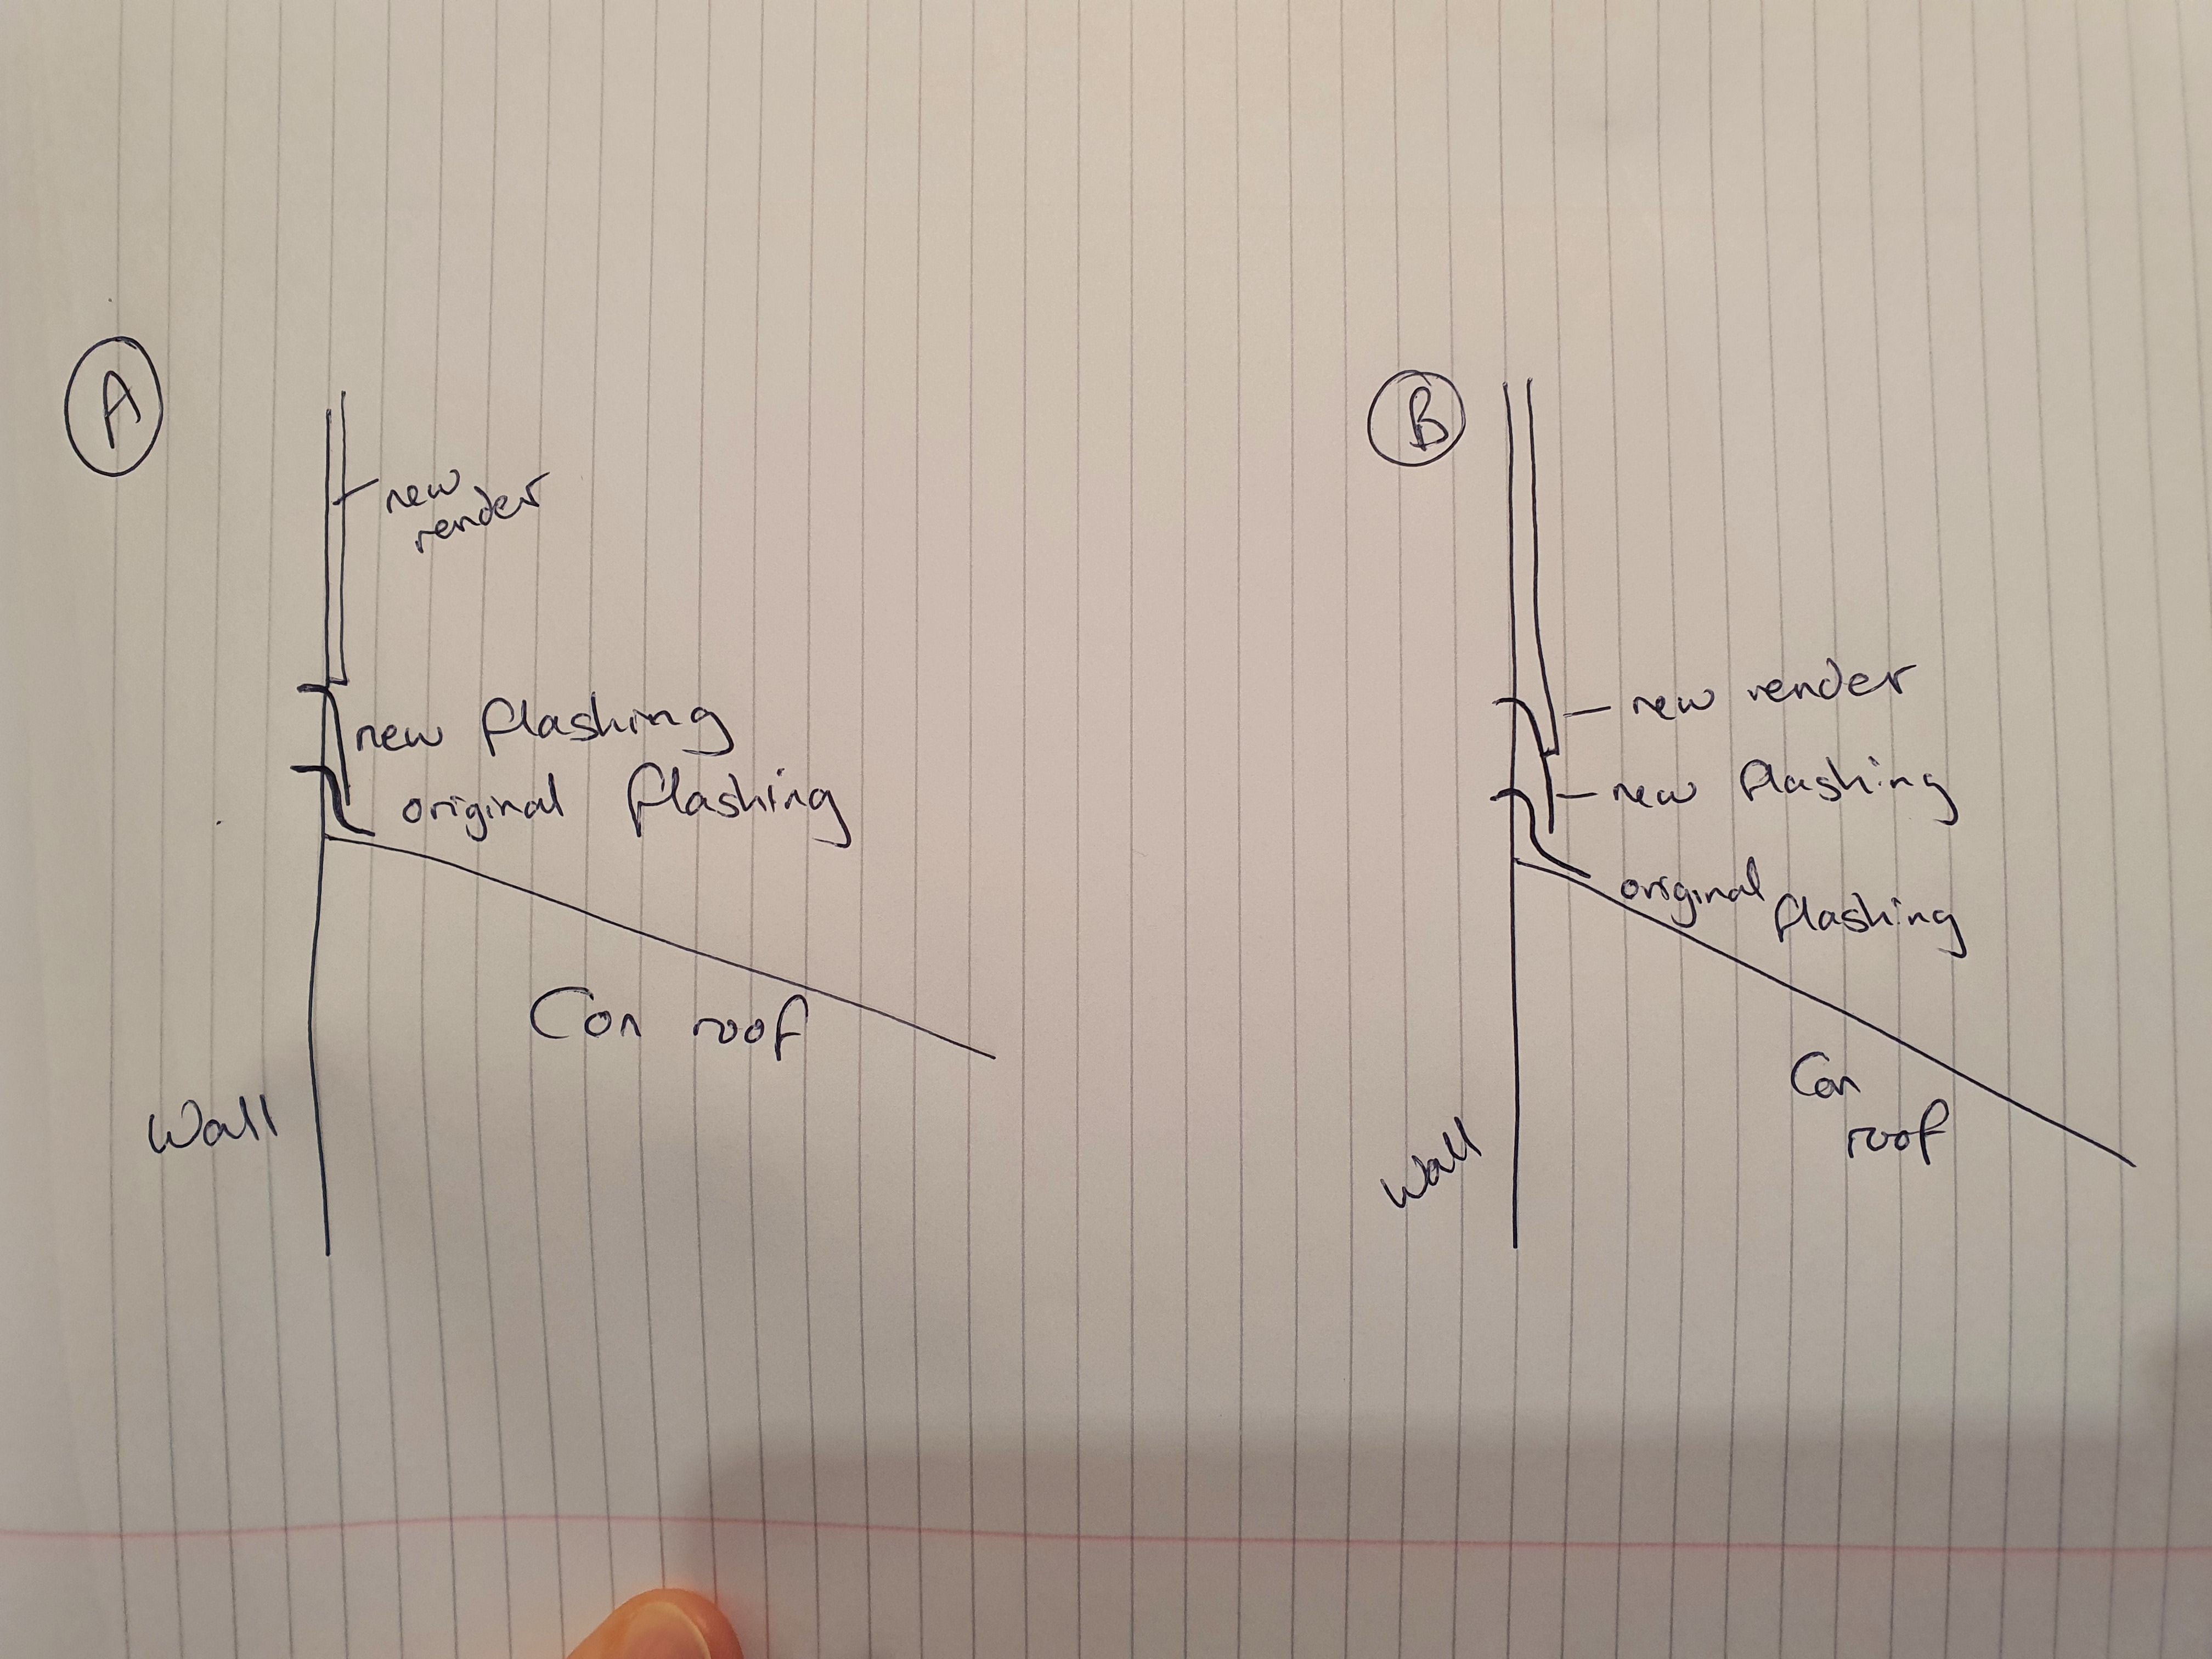 A
new
render
new flashing
original flashing
Con roof
Wall
B
new render
new flashing
original
flashing
Con
roof
Wall